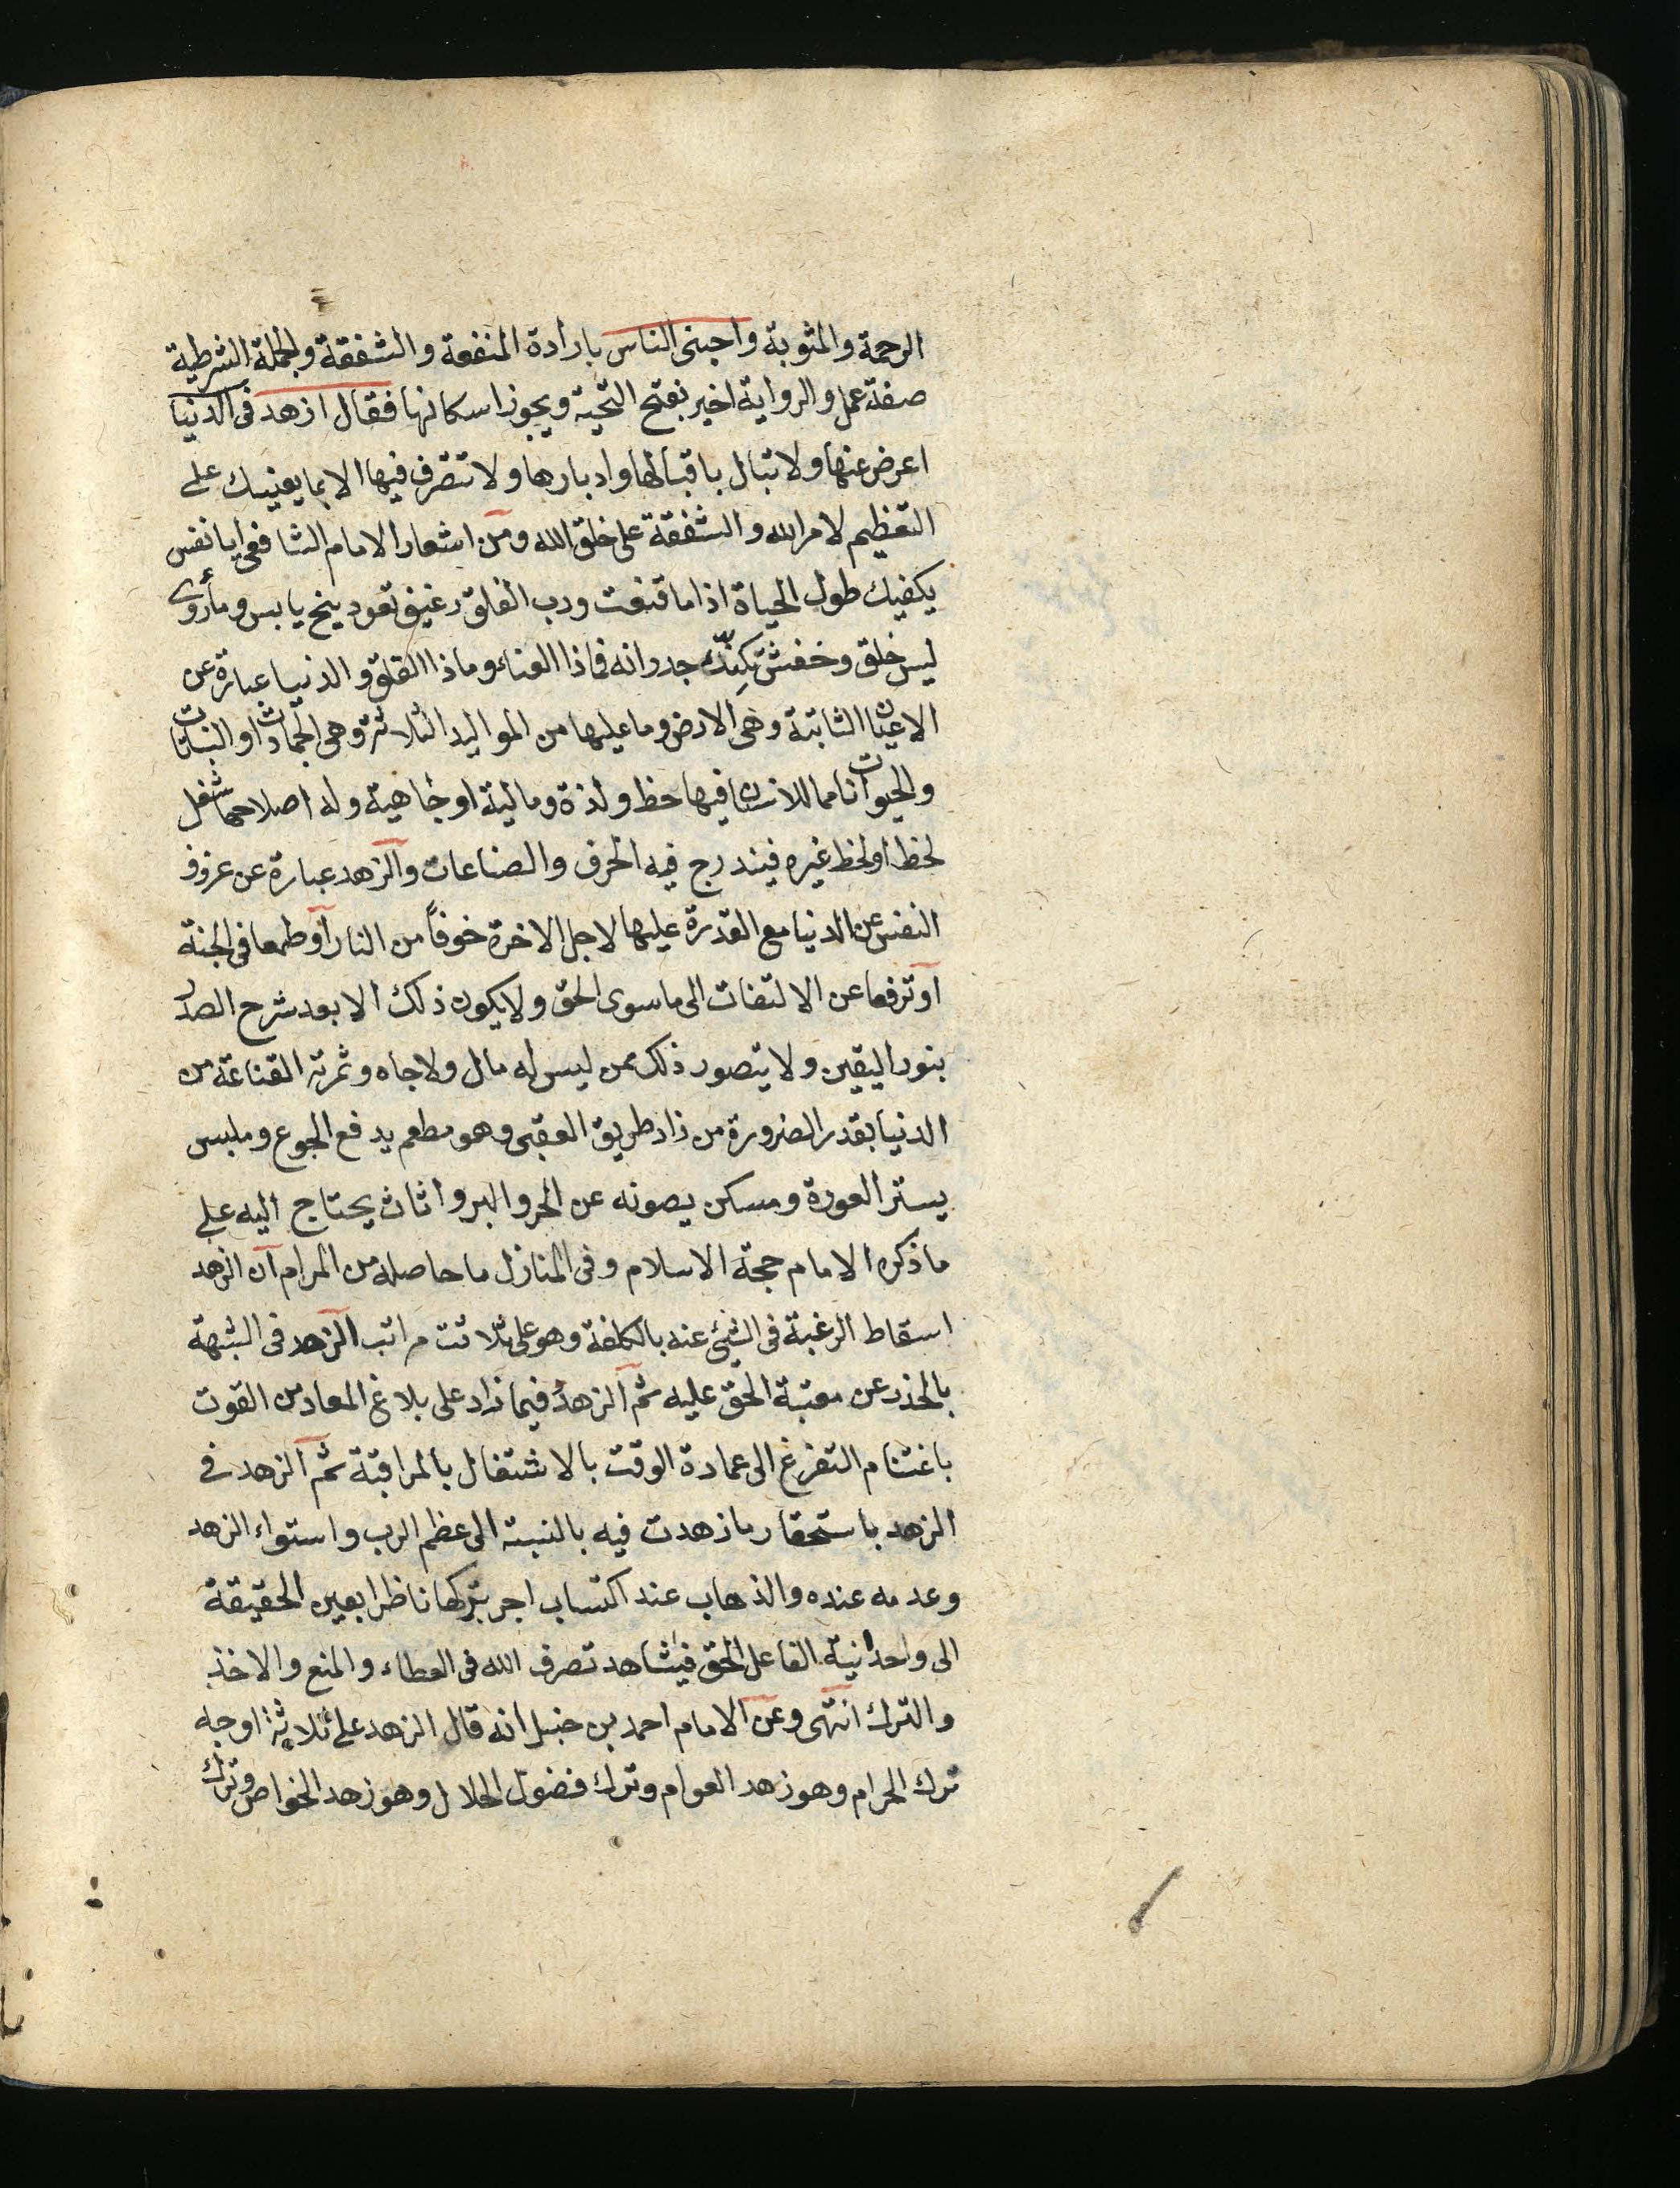 الرحمة والمثوبة واحبنى الناس بارادة المنفعة والشفقة والجملة الشرطية
صفة عمل والرواية اخير بفتح التحية ويجوز اسكانها فقال ازهد فى الدنيا
اعرض عنها ولا تبال باقبالها وادبارها ولا تتصرف فيها الا بما يعنيك على
التعظيم لامر الله والشفقة على خلق الله ومن اشعار الامام الشافعى ايا نفس
يكفيك طول الحياة اذا ما قنعت ورب الفلق رغيف بعود ينح يابس وماروى
ليس خلق وخفش تكنك جدرانه فماذا العناء وماذا القلق والدنيا عبارة عن
الاعيان الثابتة وهى الارض وما عليها من المواليد الثلاثة وهى الجمادات او النباتات
والحيوانات مما للانسان فيها حظ ولذة ومالية او جاهية وله اصلاحها شغل
لحظ او لحظ غيره فيندرج فيه الحرف والصناعات والزهد عبارة عن عزوف
النفس عن الدنيا مع القدرة عليها لاجل الاخرة خوفاً من النار او طمعا فى الجنة
او ترفعا عن الالتفات الى ماسوى الحق ولا يكون ذلك الا بعد شرح الصدر
بنور اليقين ولا يتصور ذلك ممن ليس له مال ولا جاه وثمرته القناعة من
الدنيا بقدر الضرورة من زاد طريق العقبى وهو مطعم يدفع الجوع وملبس
يستر العورة ومسكن يصونه عن الحر والبر واثاث يحتاج اليه على
ما ذكره الامام حجة الاسلام وفى المنازل ما حاصله من المرام ان الزهد
اسقاط الرغبة فى الشئ عنه بالكلفة وهو على ثلاثت مراتب الزهد فى الشبهة
بالحذر عن معتبة الحق عليه ثم الزهد فيما زاد على بلاغ المعاد من القوت
باغتنام التفرغ الى عمادة الوقت بالاشتغال بالمراقبة ثم الزهد فى
الزهد باستحقار ما زهدت فيه بالنسبة الى عظم الرب واستواء الزهد
وعدمه عنده والذهاب عند اكتساب اجر بتركها ناظرا بعين الحقيقة
الى واحدانية الفاعل الحق فيشاهد تصرف الله فى العطاء والمنع والاخذ
والترك انتهى وعن الامام احمد بن حنبل انه قال الزهد على ثلاثة اوجه
ترك الحرام وهو زهد العوام وترك فضول الحلال وهو زهد الخواص وترك